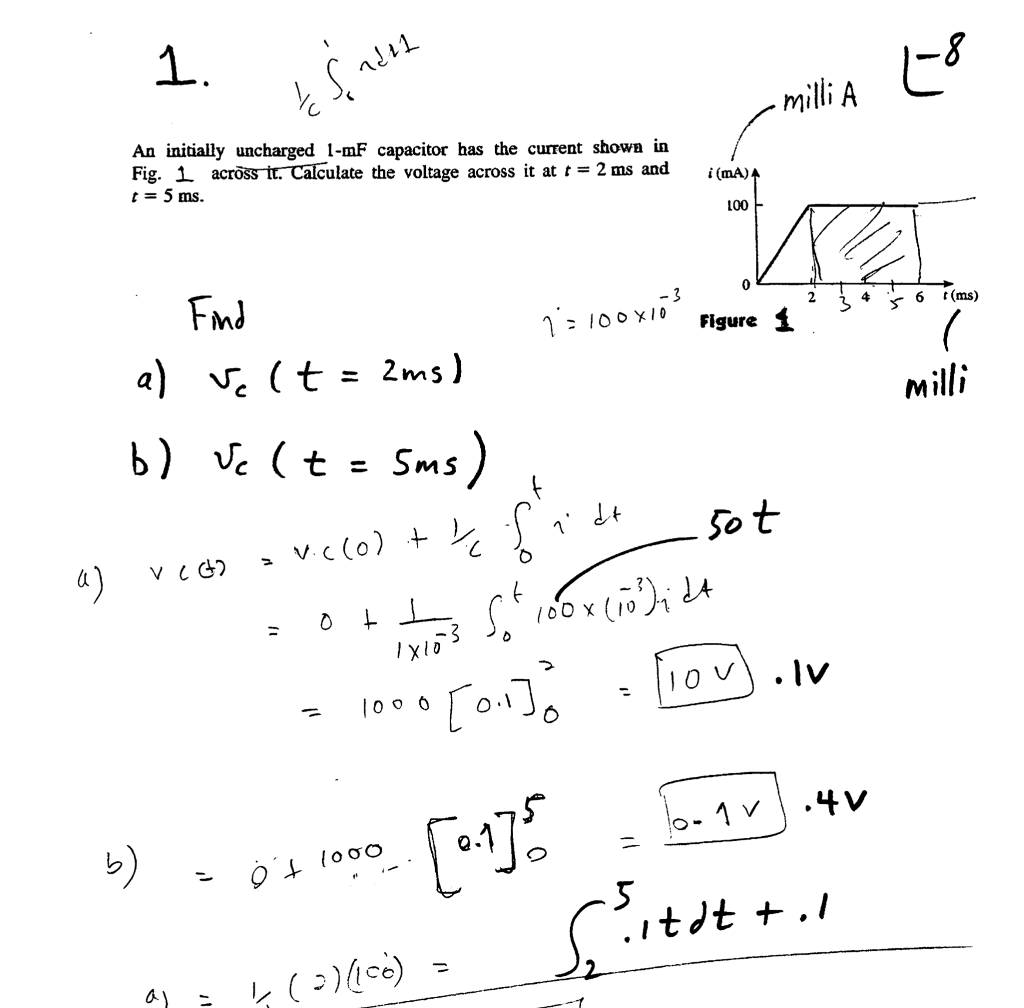 1.
-8
milli A
An initially uncharged 1-mF capacitor has the current shown in
Fig. 1 across it. Calculate the voltage across it at t = 2 ms and
t = 5 ms.
i (mA)
100
0
2 3 4 5 6 t (ms)
Figure 1
milli
i = 100 x 10^-3
Find
a) vc (t = 2ms)
b) vc (t = 5ms)
a) vc(t) = vc(0) + 1/c ∫0^t i dt
50t
= 0 + 1/(1x10^-3) ∫0^t 100 x (10^-3) i dt
= 1000 [0.1]0^2 = 10 V .1V
b) = 0 + 1000 [0.1]0^5 = 0.1V .4V
∫2^5 .1tdt + .1
a) = (2)(100) =